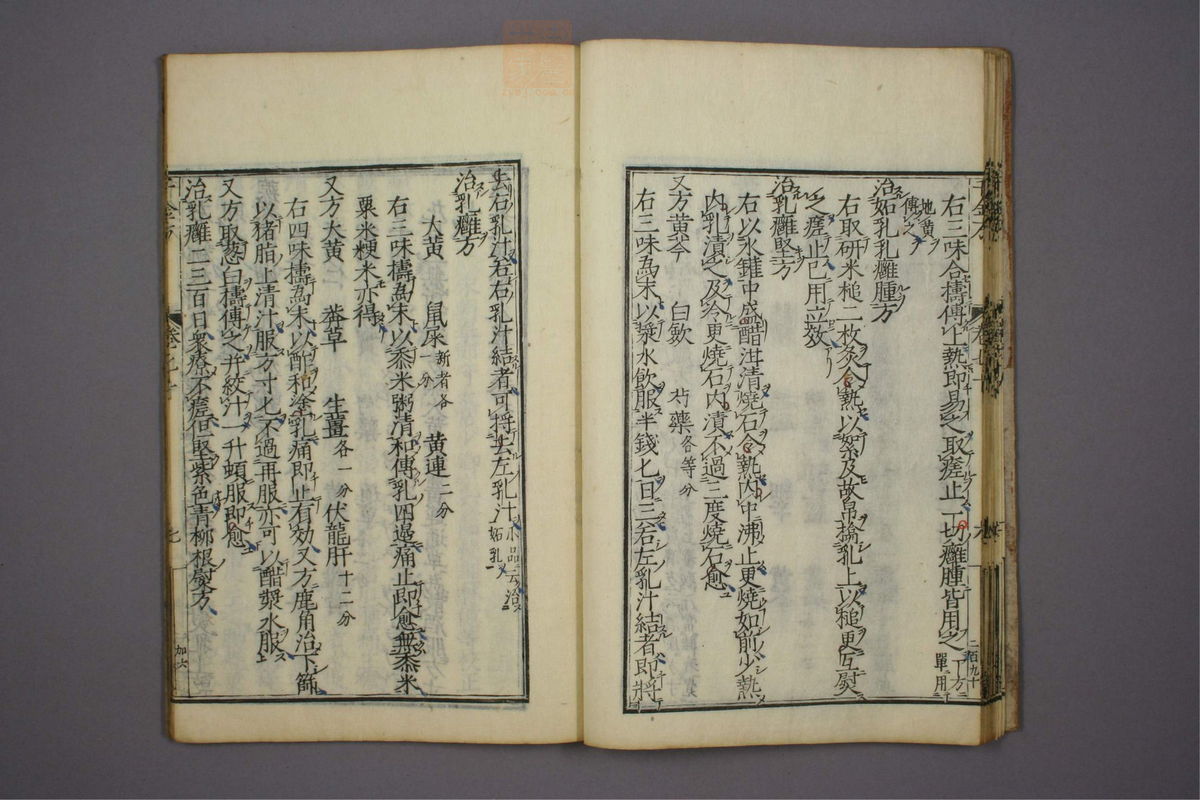 右三味合擣傅上熱即易之取瘥止一切癰腫皆用之一方
二百九十
單用
地黄
傅之
治妬乳乳癰腫方
右取研米槌二枚炙令熱以絮及故帛搶乳上以槌更互熨
之瘥止已用立效
治乳癰堅方
右以水鑵中盛醋泔清燒石令熱内中沸止更燒如前少熱
内乳漬之及冷更燒石内漬不過三度燒石愈
又方黄芩　白歛　芍藥各等分
右三味為末以漿水飲服半錢匕日三若左乳汁結者即將
去右乳汁若右乳汁結者可捋去左乳汁小品云治
妬乳
治乳癰方
大黄　鼠屎新者各一分　黄連二分
右三味擣為末以黍米粥清和傅乳四邊痛止即愈無黍米
粟米粳米亦得
又方大黄　莽草　生薑各一分　伏龍肝十二分
右四味擣為末以酢和塗乳痛即止有効又方鹿角治下篩
以猪脂上清汁服方寸匕不過再服亦可以醋漿水服
又方取葱白擣傅之并絞汁一升頓服即愈
治乳癰二三百日衆療不瘥但堅紫色青柳根熨方
加六